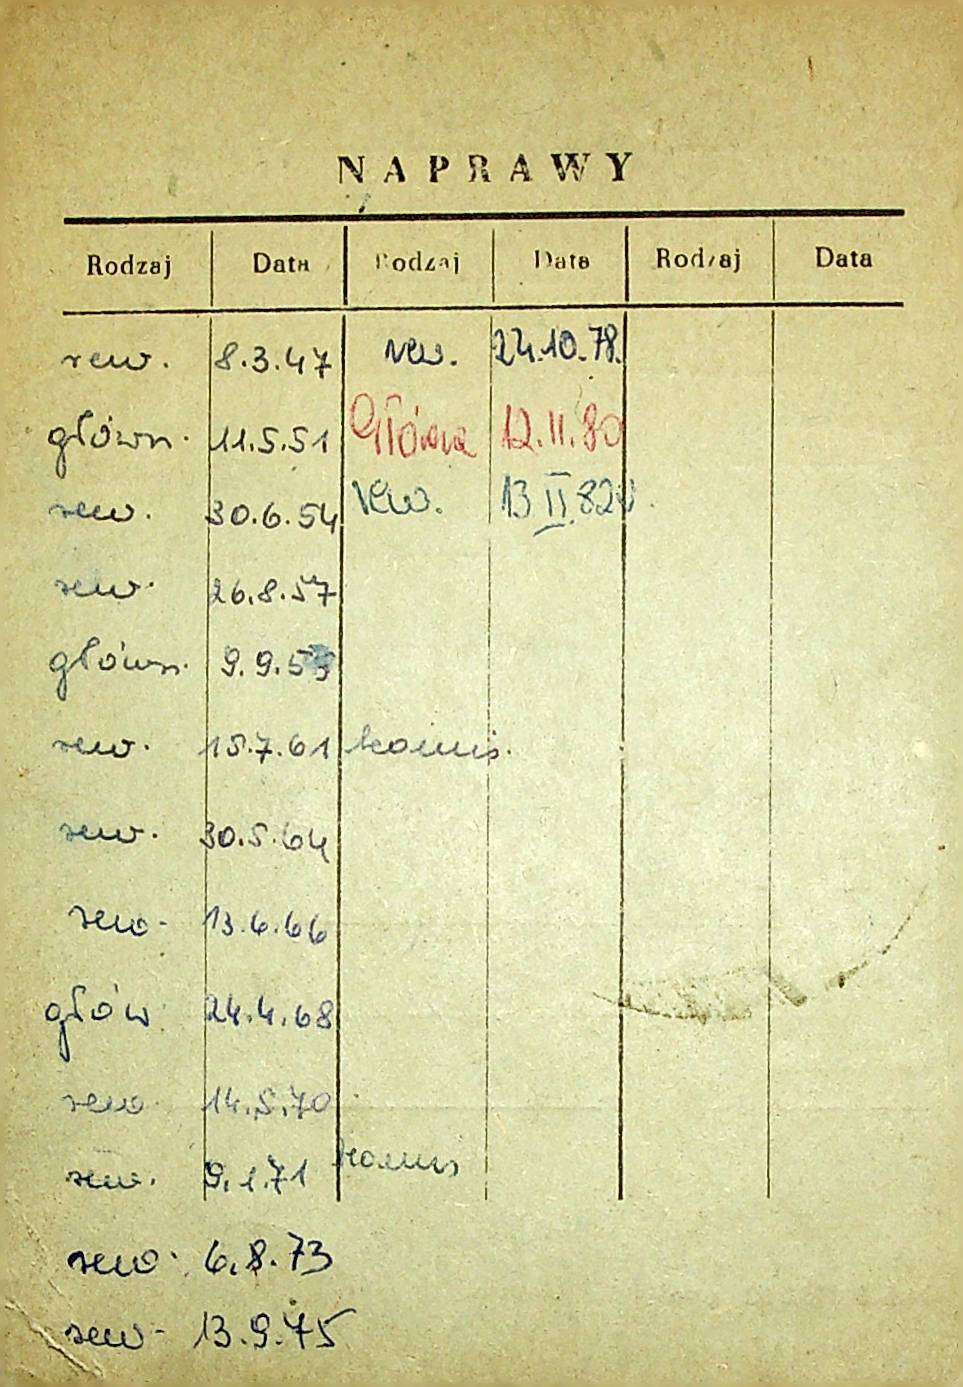 NAPRAWY
Rodzaj Data Rodzaj Data Rodzaj Data
rew. 8.3.47 rew. 24.10.78.
główn. 11.5.51 Główna 12.II.80
rew. 30.6.54 rew. 13 II 82
rew. 26.8.57
główn. 9.9.59
rew. 15.7.61 komis.
rew. 30.5.64
rew. 13.6.66
głów 24.4.68
rew. 14.5.70
rew. 9.1.71 komis
rew. 6.8.73
rew. 13.9.75